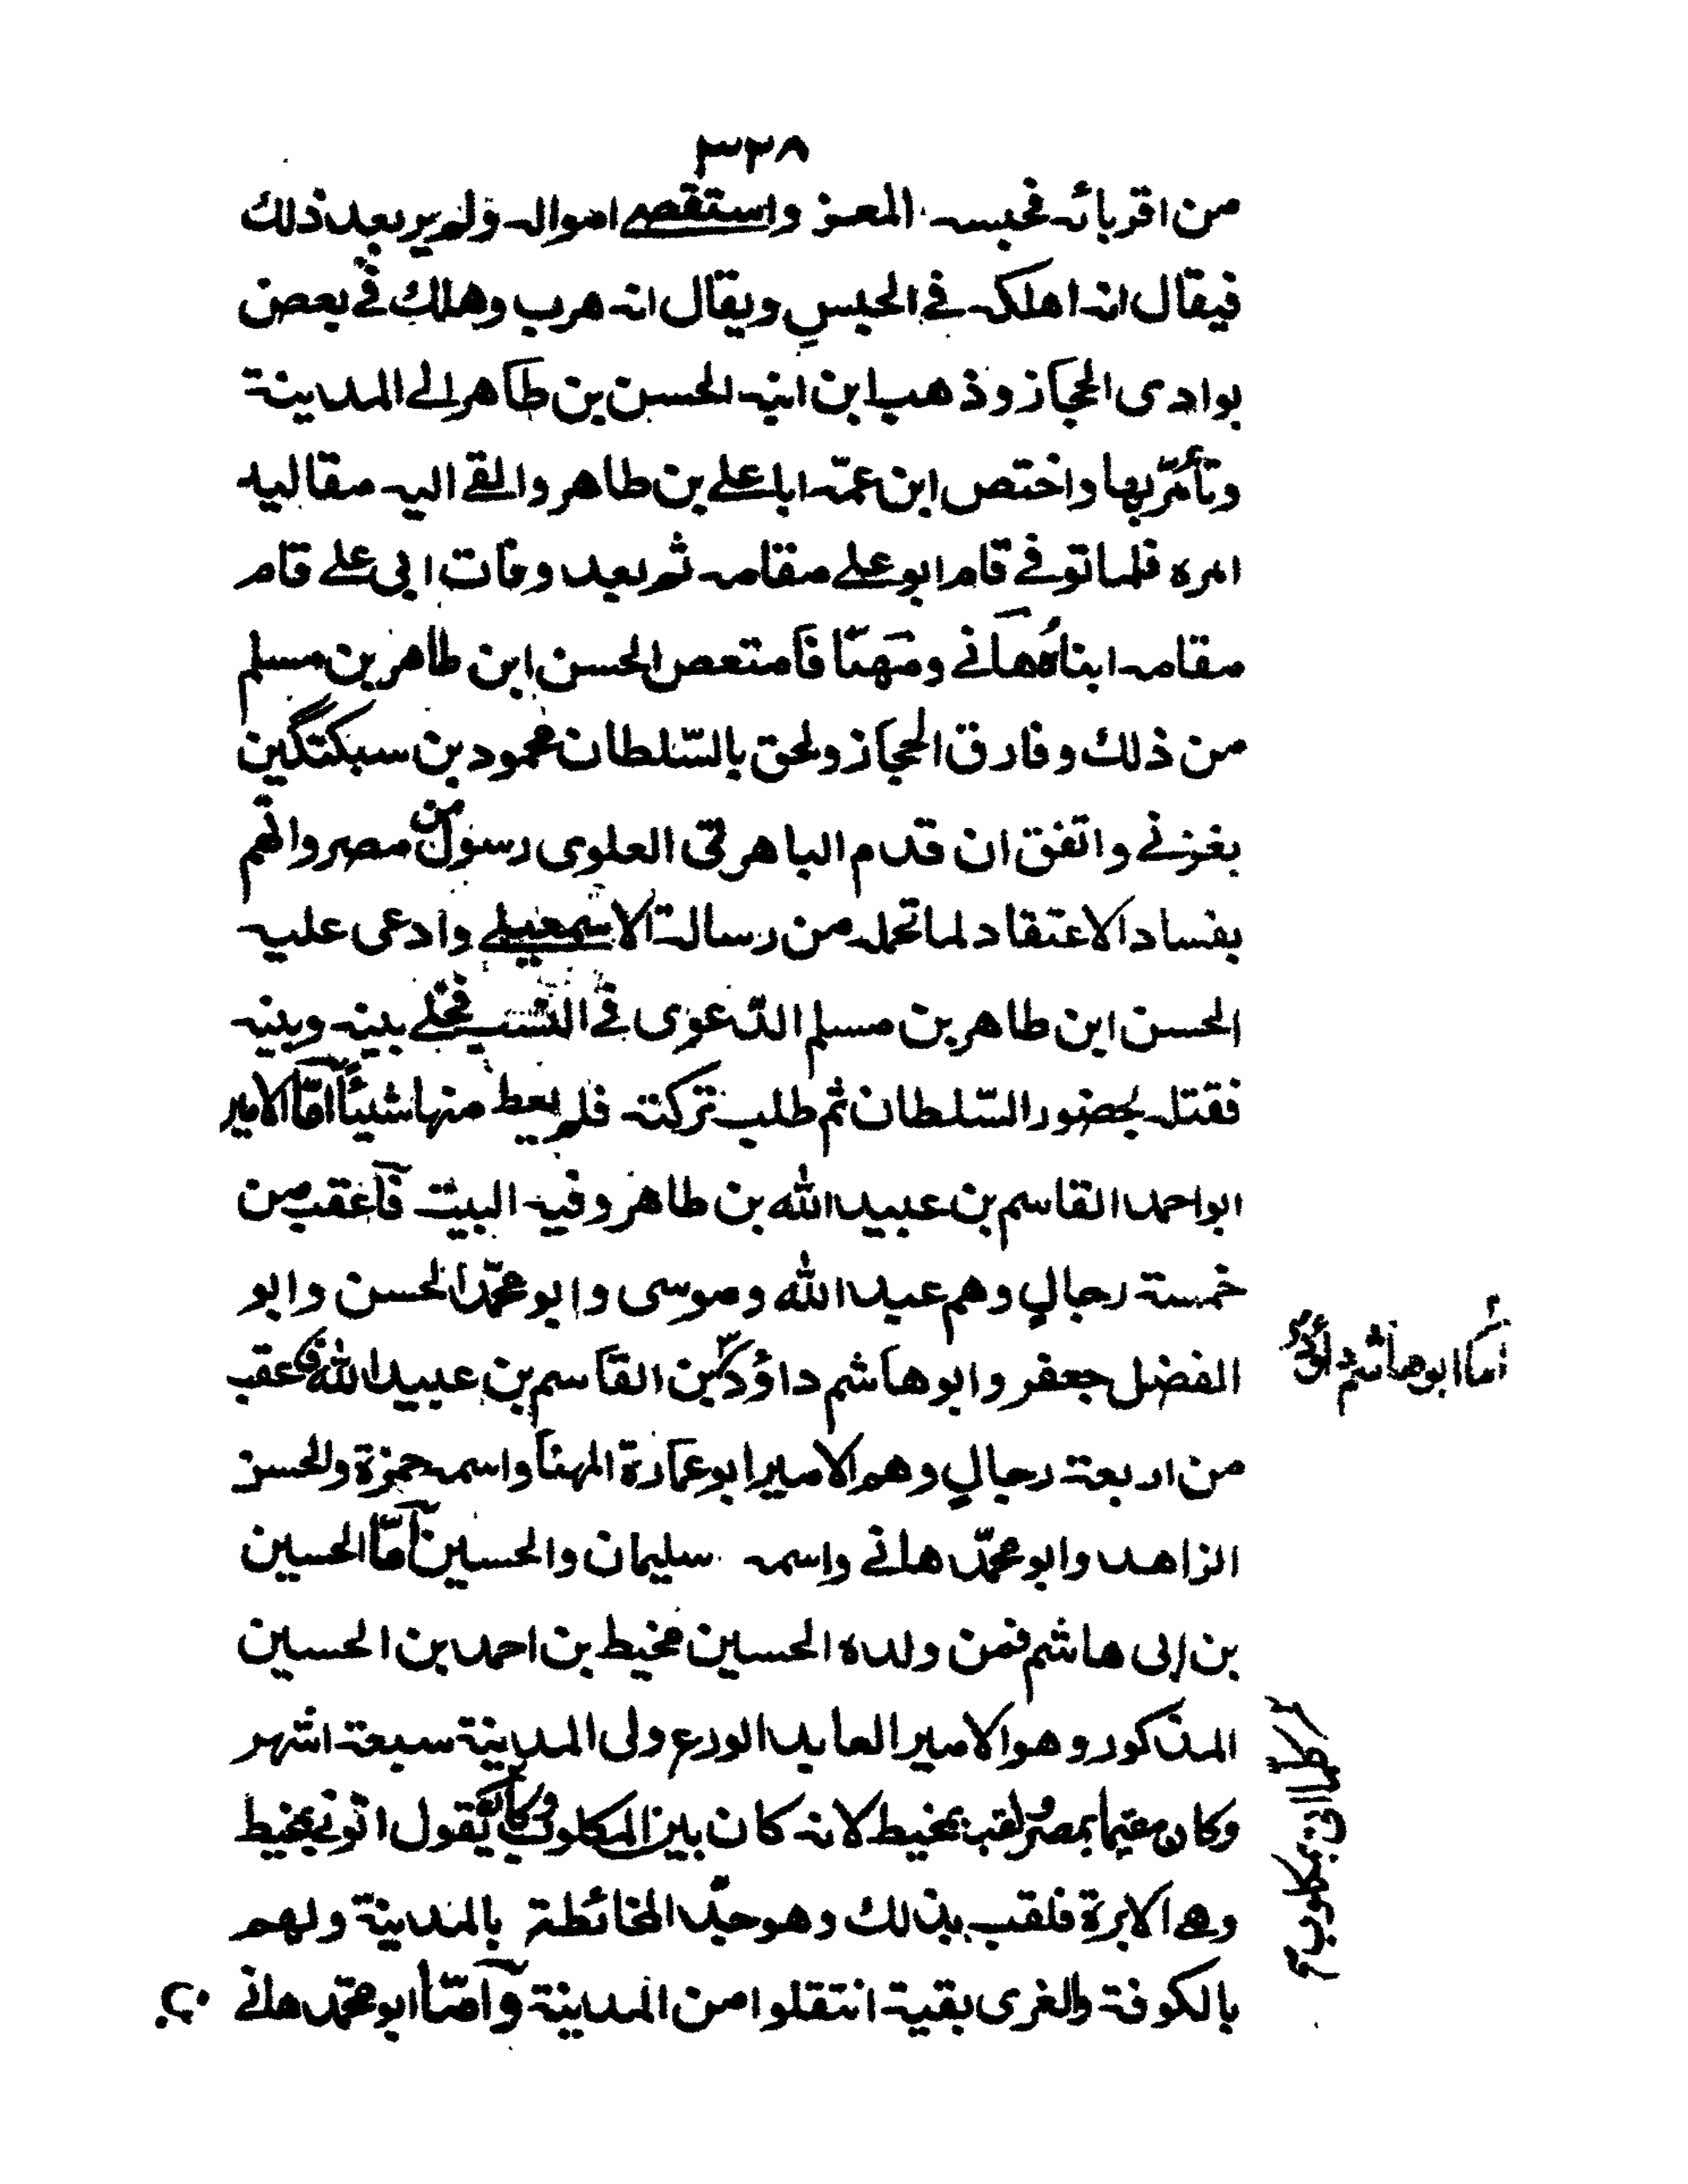 ٣٣٨
من اقربائه فحبسه المعز واستقصى امواله ولم ير بعد ذلك
فيقال انه اهلكه في الحبس ويقال انه هرب وهلك في بعض
بوادى الحجاز وذهب ابن ابنه الحسن بن طاهر الى المدينة
وتأمّر بها واختص ابن عمّه ابا علي بن طاهر والقى اليه مقاليد
امره فلما توفي قام ابو علي مقامه ثم بعد وفات ابي علي قام
مقامه ابناه هاني ومهنّا فامتعض الحسن ابن طاهر بن مسلم
من ذلك وفارق الحجاز ولحق بالسّلطان محمود بن سبكتگين
بغزني واتفق ان قدم الباهرتى العلوى رسولا من مصر واتهم
بفساد الاعتقاد لما تحمله من رسالة الاسمعيلي وادعى عليه
الحسن ابن طاهر بن مسلم الدّعوى في النسب فخلي بينه وبينه
فقتله بحضور السّلطان ثم طلب تركته فلم يعط منها شيئاً امّا الامير
ابو احمد القاسم بن عبيد الله بن طاهر وفيه البيت فاعقب من
خمسة رجالٍ وهم عبيد الله وموسى وابو محمّد الحسن وابو
الفضل جعفر وابو هاشم داؤد بن القاسم بن عبيد الله فاعقب
اما ابو هاشم داؤد
من اربعة رجالٍ وهم الامير ابو عمارة المهنا واسمه حمزة والحسن
الزاهد وابو محمّد هاني واسمه سليمان والحسين امّا الحسين
بن ابى هاشم فمن ولده الحسين مخيط بن احمد بن الحسين
المذكور وهو الامير العابد الورع ولى المدينة سبعة اشهر
وكان مقيما بمصر ولقب بمخيط لانه كان يبزل المكلوب وكان يقول اتوني بمخيط
كلما اتى بمكلوب
وهي الابرة فلقب بذلك وهو جدّ المخائطة بالمدينة ولهم
بالكوفة والغرى بقية انتقلوا من المدينة وامّا ابو محمّد هاني
بن